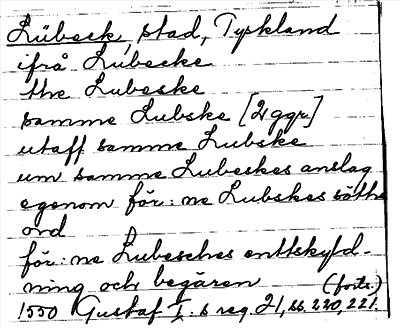 Lübeck, stad, Tyskland
ifrå Lubecke
the Lubeske
samme Lubske [2 ggr]
utaff samme Lubske
um samme Lubeskes anslag
egenom för:ne Lubskes söthe
ord
för:ne Lubesches enttskyld-
ning och begären (forts.)
1550 Gustaf I:s reg 21, ss. 220, 221.